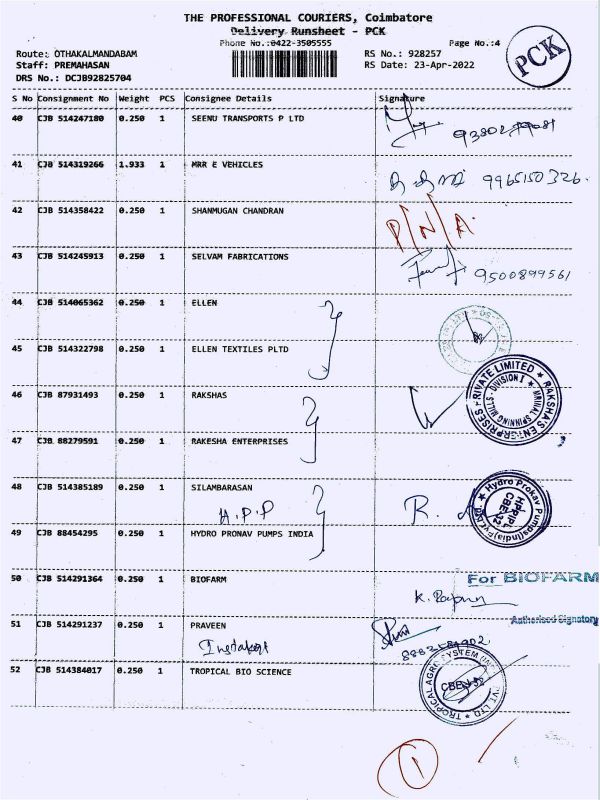 THE PROFESSIONAL COURIERS, Coimbatore
Delivery Runsheet - PCK
Phone No.:0422-3505555 Page No.:4
Route: OTHAKALMANDABAM RS No.: 928257
Staff: PREMAHASAN RS Date: 23-Apr-2022
DRS No.: DCJB92825704
PCK
S No Consignment No Weight PCS Consignee Details Signature
40 CJB 514247180 0.250 1 SEENU TRANSPORTS P LTD
41 CJB 514319266 1.933 1 MRR E VEHICLES
9965150326.
42 CJB 514358422 0.250 1 SHANMUGAN CHANDRAN
P/N/A.
43 CJB 514245913 0.250 1 SELVAM FABRICATIONS
9500899561
44 CJB 514065362 0.250 1 ELLEN
45 CJB 514322798 0.250 1 ELLEN TEXTILES PLTD
46 CJB 87931493 0.250 1 RAKSHAS
47 CJB 88279591 0.250 1 RAKESHA ENTERPRISES
48 CJB 514385189 0.250 1 SILAMBARASAN
H.P.P R.
49 CJB 88454295 0.250 1 HYDRO PRONAV PUMPS INDIA
HPPIPL
CBE-32
50 CJB 514291364 0.250 1 BIOFARM
For BIOFARM
Authorised Signatory
51 CJB 514291237 0.250 1 PRAVEEN
52 CJB 514384017 0.250 1 TROPICAL BIO SCIENCE
1